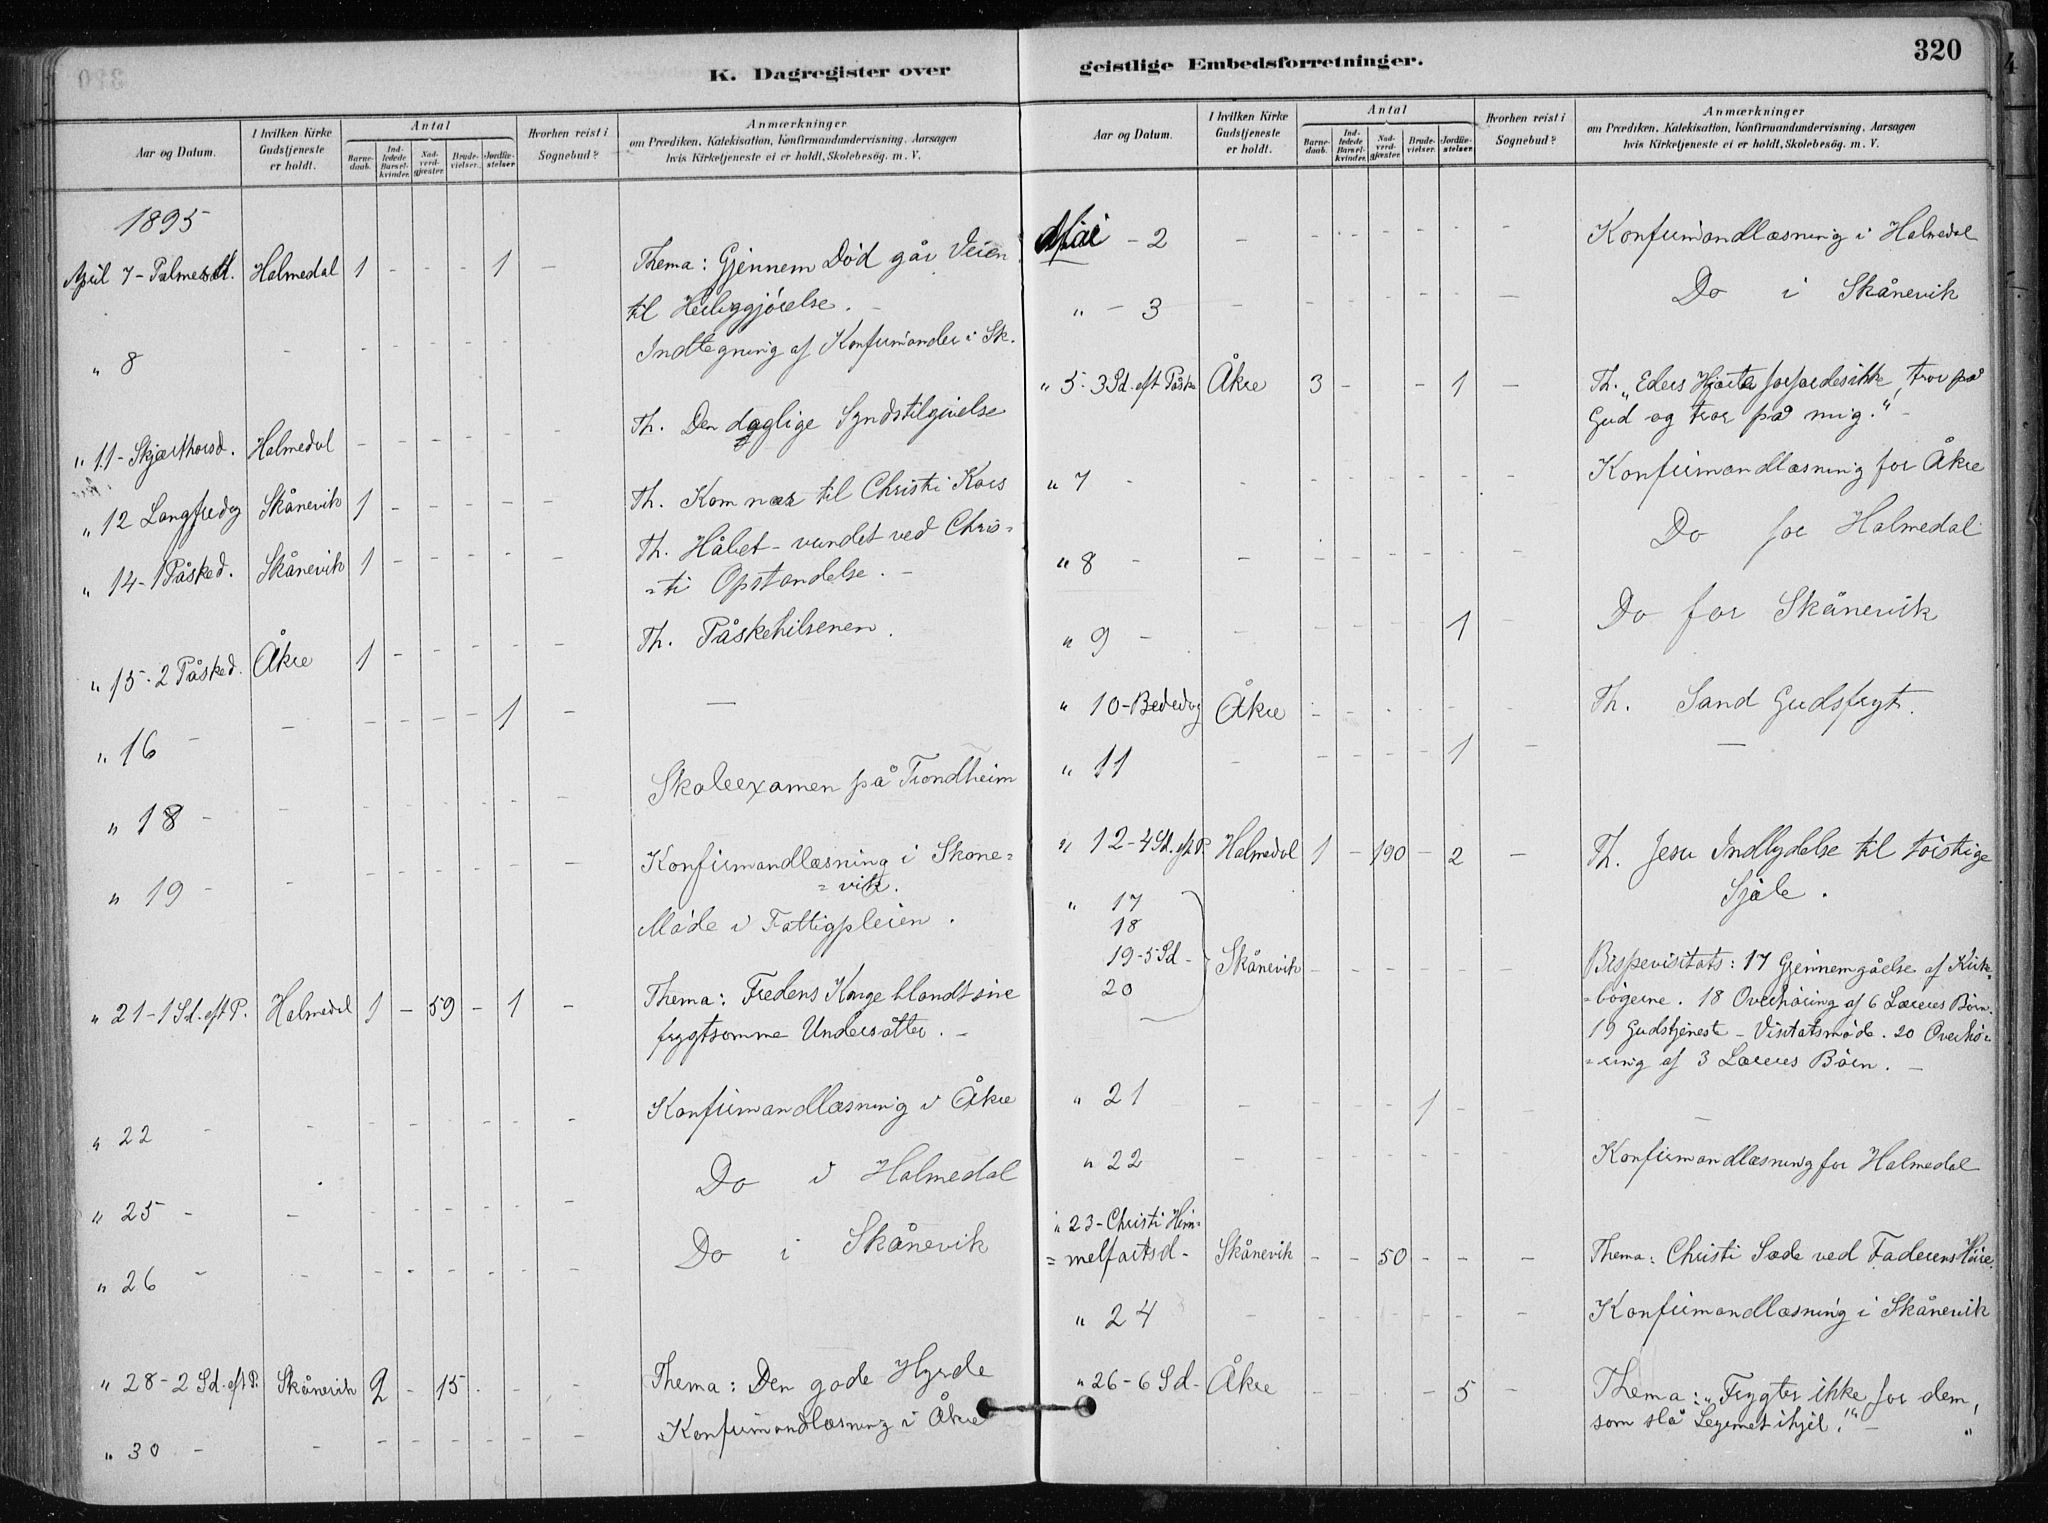 K. Dagregister over
Aar og Datum.
I hvilken Kirke Gudstjeneste er holdt.
Antal
Barnedaab.
Indledede Barselkvinder.
Nadverdgjæster.
Brudevielser.
Jordfæstelser.
Hvorhen reist i Sognebud?
Anmærkninger
om Prædiken, Katekisation, Konfirmandundervisning, Aarsagen
hvis Kirketjeneste ei er holdt, Skolebesög. m. V.
1895
April 7 - Palmesød. Halmedal 1 - - - 1 - Thema: Gjennem Død går Veien
til Helliggjörelse.
" 8 - - Indtegning af Konfirmander i Sk.
" 11 - Skjærthorsd. Halmedal - - - - - - Th. Den daglige Syndstilgivelse
" 12 Langfredag Skånevik 1 - - - - - Th. Kom nær til Christi Kors
" 14 - 1 Påsked. Skånevik 1 - - - - - Th. Håbet - vundet ved Chris=
=ti Opstandelse. -
" 15 - 2 Påsked. Åkre 1 - - - - Th. Påskehilsenen.
" 16 - - - - - - 1 - -
" 18 - - - - - - - - Skoleexamen på Trondheim
" 19 - - - - - - - - Konfirmandlæsning i Skåne=
=vik.
Möde i Fattigpleien.
" 21 - 1 Sd. eft P. Halmedal 1 - 59 - 1 - Thema: Fredens Konge blandt sine
frygtsomme Undersåtter. -
" 22 - - - - - - - - Konfirmandlæsning i Åkre
" 25 - - - Do i Halmedal
" 26 - - - - - - - - Do i Skånevik
" 28 - 2 Sd. eft P. Skånevik 2 - 15 - - - Thema: Den gode Hyrde
" 30 - - - - - - - - Konfirmandlæsning i Åkre
geistlige Embedsforretninger.
320
Aar og Datum.
I hvilken Kirke Gudstjeneste er holdt.
Antal
Barnedaab.
Indledede Barselkvinder.
Nadverdgjæster.
Brudevielser.
Jordfæstelser.
Hvorhen reist i Sognebud?
Anmærkninger
om Prædiken, Katekisation, Konfirmandundervisning, Aarsagen
hvis Kirketjeneste ei er holdt, Skolebesög. m. V.
Mai - 2 - - - - - - - Konfirmandlæsning i Halmedal
" - 3 - - - - - - - Do i Skånevik
" 5 - 3 Sd. eft Påske Åkre 3 - - - 1 - Th. "Eders Hjerte forfærdes ikke, tror på
Gud og tror på mig." -
" 7 - - - - - - - - Konfirmandlæsning for Åkre
" 8 - - - - - - - - Do for Halmedal
" 9 - - - - - - 1 - Do for Skånevik
" 10 - Bededag Åkre - - - - - - Th. Sand Gudsfrygt.
" 11 - - - - - 1 - -
" 12 - 4 Sd. eft P. Halmedal 1 - 190 - 2 - Th. Jesu Indbydelse til törstige
Sjæle.
" 17
18
19 - 5 Sd -
20
Skånevik - - - - - - Bispevisitats: 17 Gjennemgåelse af Kirke=
=bögerne. 18 Overhöring af 6 Læreres Börn.
19 Gudstjeneste - Visitatsmöde. 20 Overhö=
=ring af 3 Læreres Börn. -
" 21 - - - - 1 - - -
" 22 - - - - - - - Konfirmandlæsning for Halmedal
" 23 - Christi Him=
=melfartsd - Skånevik - - 50 - - - Thema: Christi Sæde ved Faderens Höire.
" 24 - - - - - - - Konfirmandlæsning i Skånevik
" 26 - 6 Sd - Åkre - - - - 5 - Thema: "Frygter ikke for dem,
som slå Legemet ihjel!" -